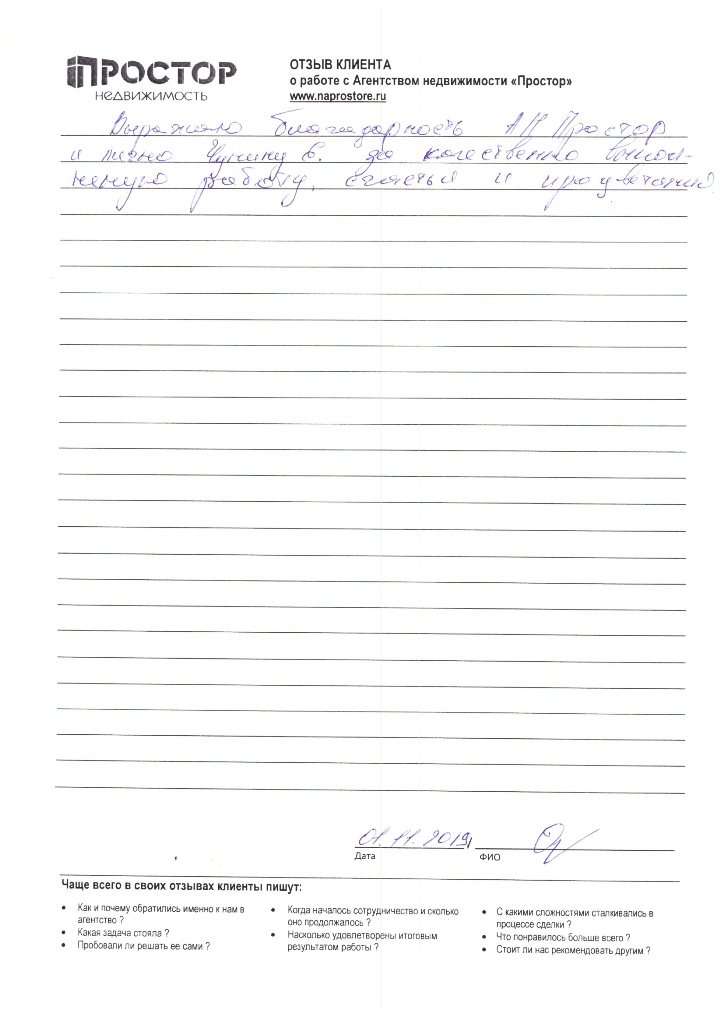 ПРОСТОР
НЕДВИЖИМОСТЬ
ОТЗЫВ КЛИЕНТА
о работе с Агентством недвижимости «Простор»
www.naprostore.ru
Выражаю благодарность АН Простор
и лично Чунину В. за качественно выпол-
неную работу, счастья и процветания
01.11.2019
Дата
ФИО
Чаще всего в своих отзывах клиенты пишут:
• Как и почему обратились именно к нам в
агентство ?
• Какая задача стояла ?
• Пробовали ли решать ее сами ?
• Когда началось сотрудничество и сколько
оно продолжалось ?
• Насколько удовлетворены итоговым
результатом работы ?
• С какими сложностями сталкивались в
процессе сделки ?
• Что понравилось больше всего ?
• Стоит ли нас рекомендовать другим ?